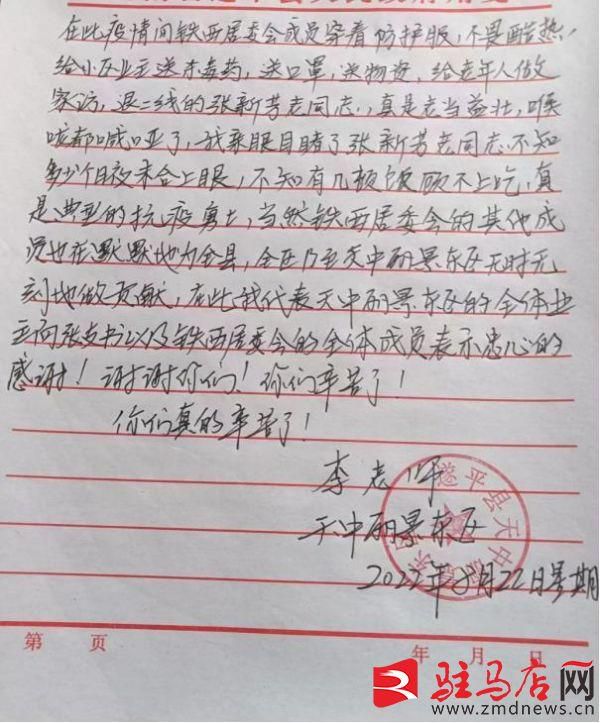 在此疫情间铁西居委会成员穿着防护服，不畏酷热，
给小区业主送杀毒药，送口罩，送物资，给老年人做
家访，退二线的张新芳老同志，真是老当益壮，喉
咙都喊哑了，我亲眼目睹了张新芳老同志不知
多少个日夜未合上眼，不知有几顿饭顾不上吃，真
是典型的抗疫勇士，当然铁西居委会的其他成
员也在默默地为全县，全区乃至天中丽景东区无时无
刻地做贡献，在此我代表天中丽景东区的全体业
主向张支书以及铁西居委会的全体成员表示忠心的
感谢！谢谢你们！你们辛苦了！
你们真的辛苦了！
李志军
天中丽景东区
2022年8月22日星期
遂平县天中
第 页
年 月 日
驻马店网
www.zmdnews.cn